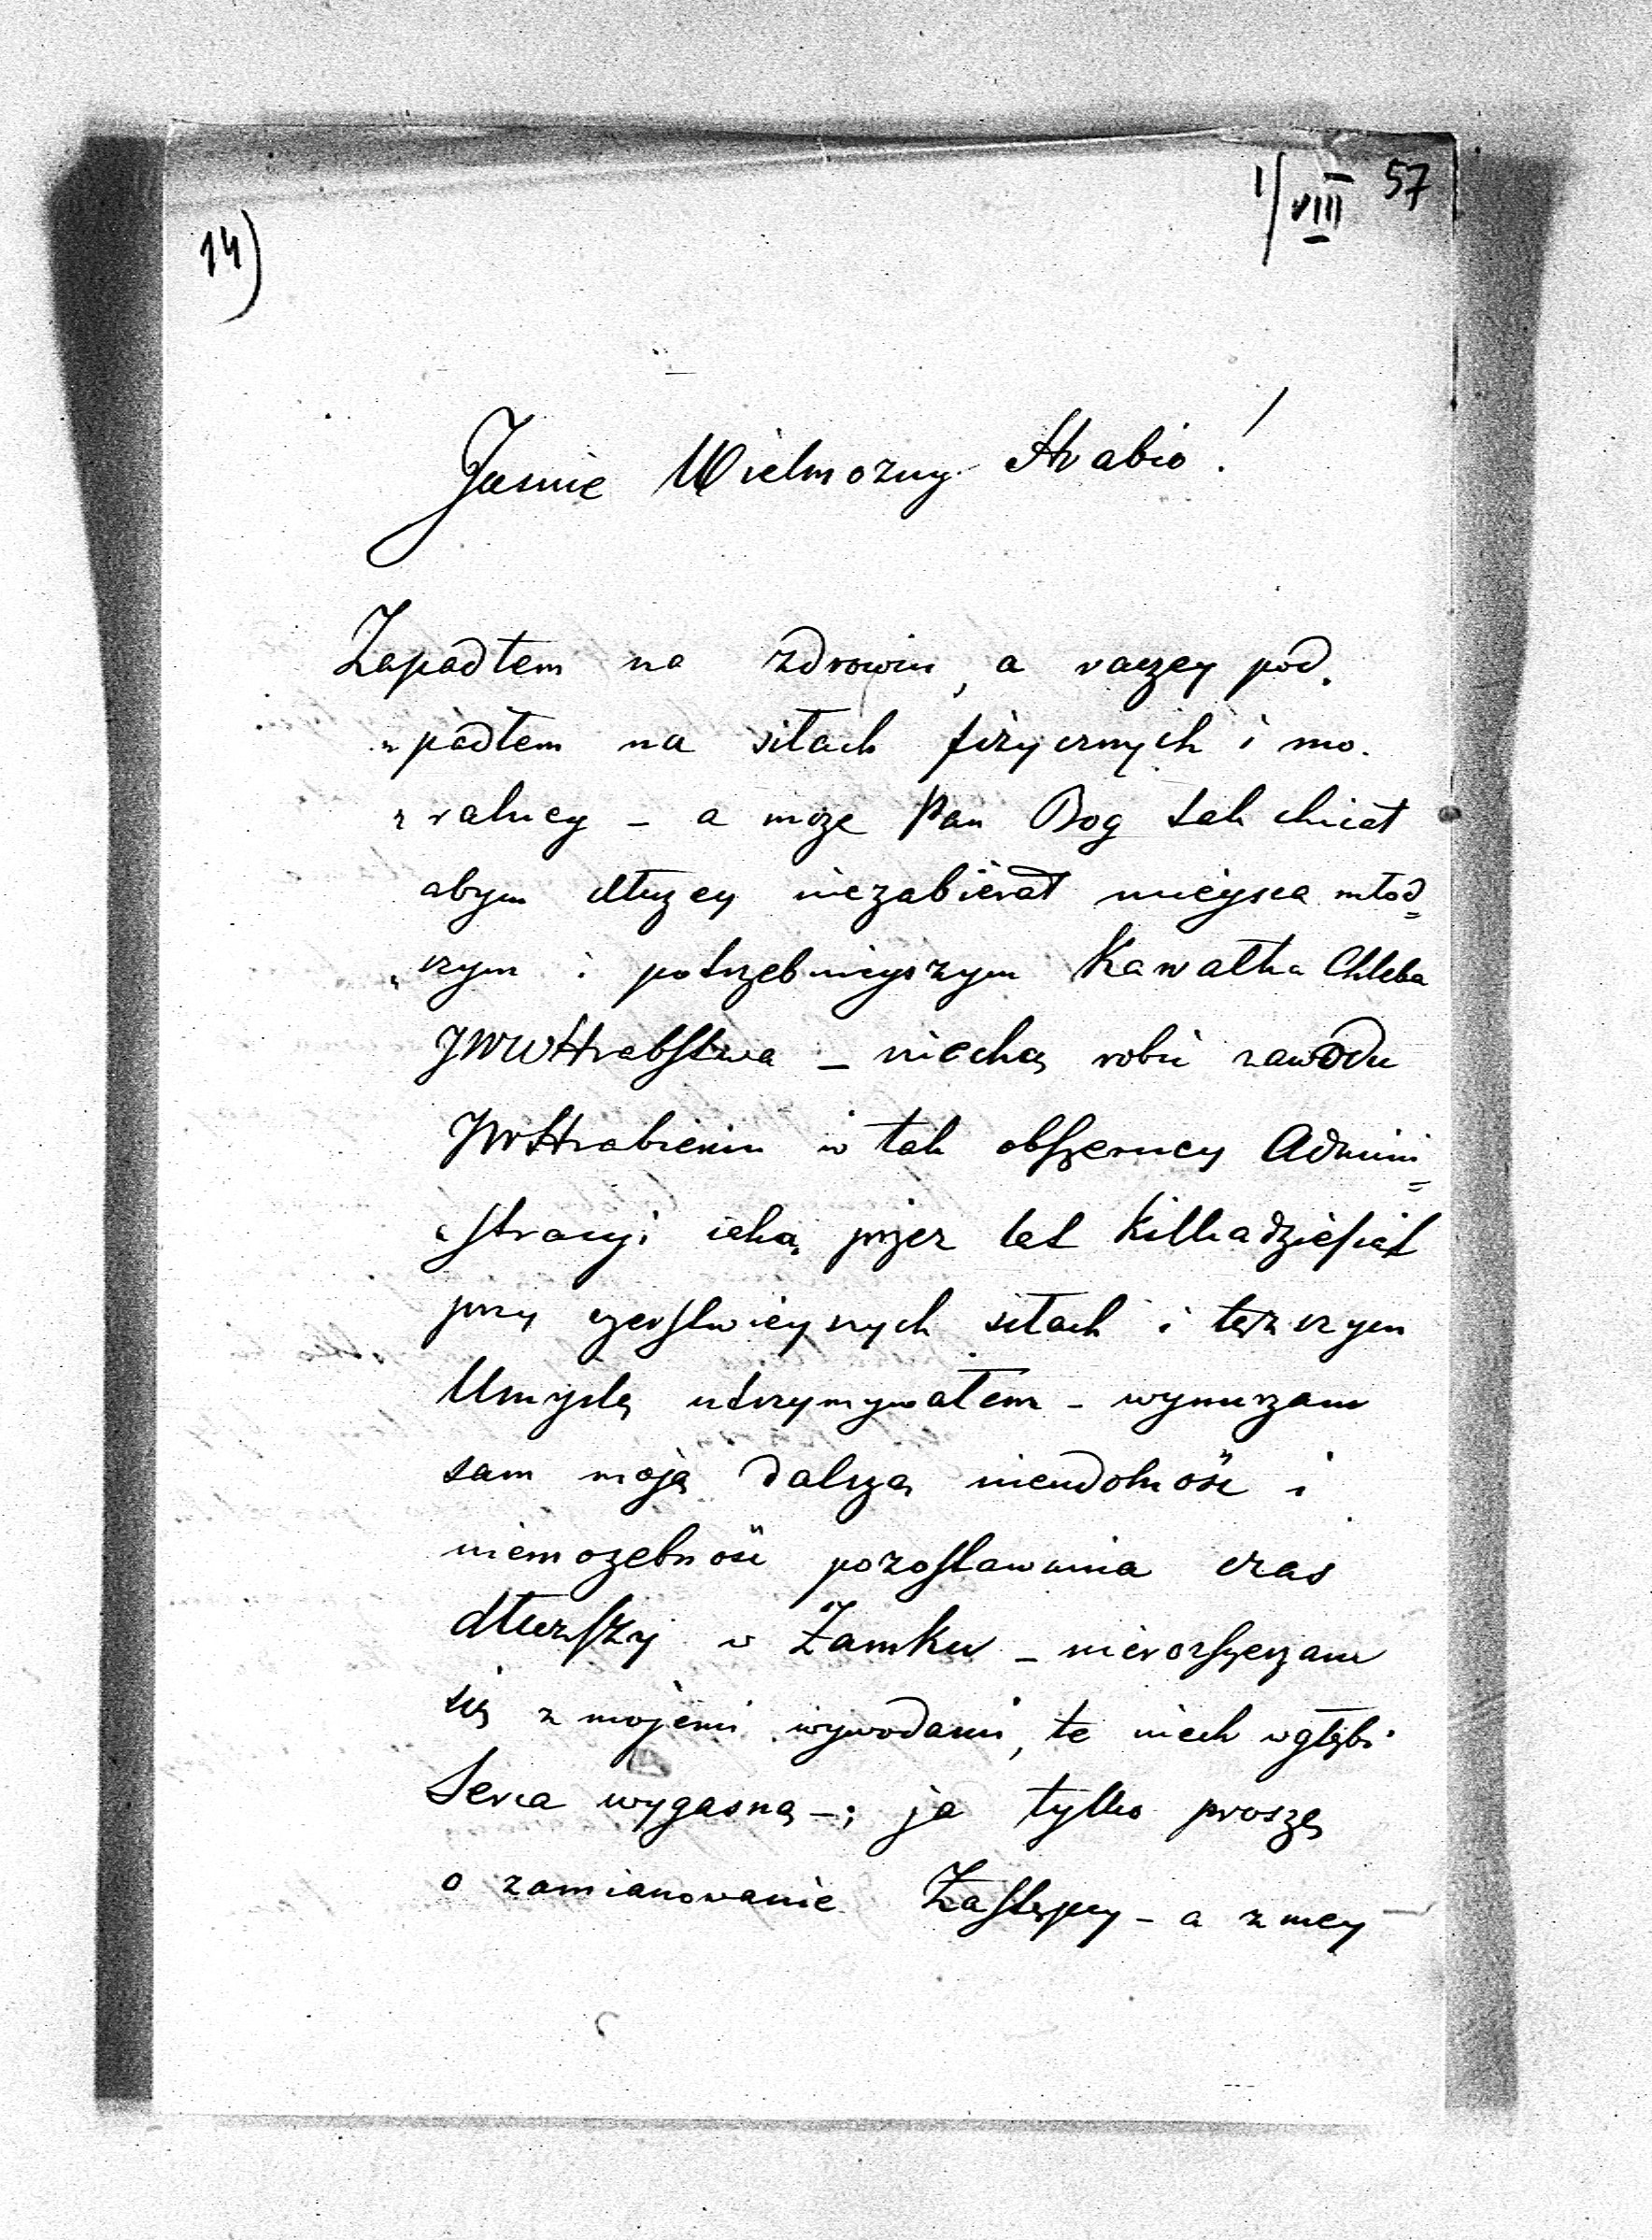 14)
1/VIII 57
Jasnie Wielmozny Hrabio!
Zapadłem na zdrowiu, a raczey pod-
„padłem na siłach fizycznych i mo-
„ralney – a może Pan Bog tak chciał
abym dłuzey niezabierał mieysca młod=
„szym i potrzebnieyszym Kawałka Chleba
JWW Hrabstwa – niechcą robić zawodu
JW Hrabiemu w tak obszerney Admini=
„stracyi iaką przez lat Kilkadziesiąt
przy czerstwieyszych siłach i tęższym
Umyslę utrzymywałem – wynurzam
sam moją dalszą nieudolność i
niemozebność pozostawania czas
dłuższy w Zamku – nierozszerzam
się z mojemi wywodami, te niech w głębi
Serca wygasną –; ja tylko proszę
o zamianowanie Zastępcy – a z mey